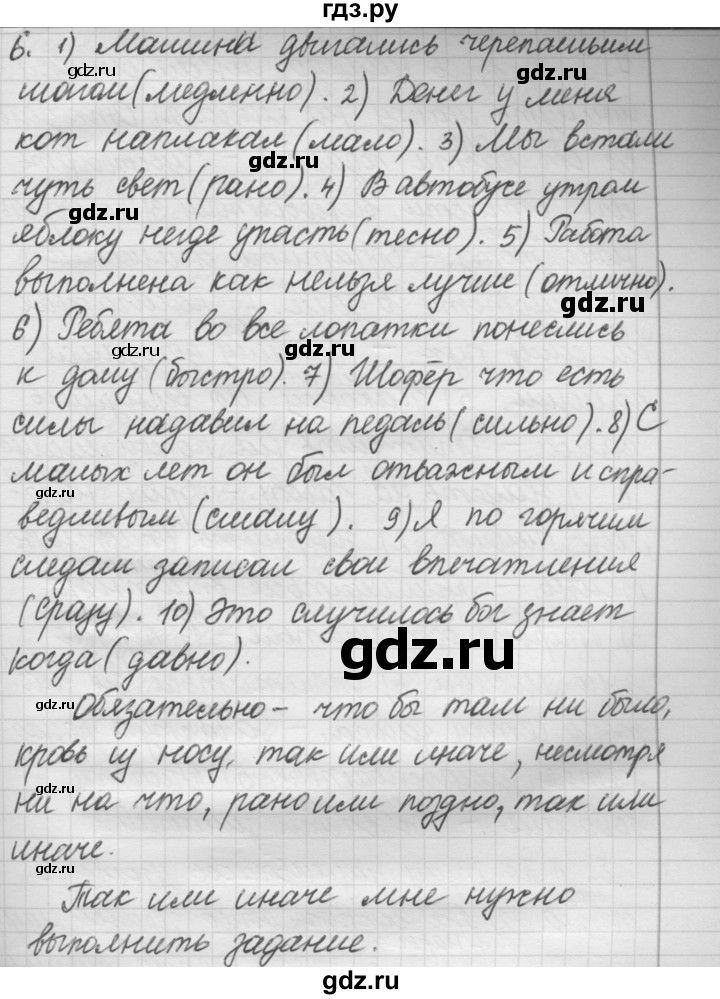 гдз.ру
6. 1) Машина двигались черепашьим
шагом (медленно). 2) Денег у меня
кот наплакал (мало). 3) Мы встали
чуть свет (рано). 4) В автобусе утром
яблоку негде упасть (тесно). 5) Работа
выполнена как нельзя лучше (отлично).
6) Ребята во все лопатки понеслись
к дому (быстро). 7) Шофёр что есть
силы надавил на педаль (сильно). 8) С
малых лет он был отважным и спра-
ведливым (смалу). 9) Я по горячим
следам записал свои впечатления
(сразу). 10) Это случилось бог знает
когда (давно).
gdz.ru
Обязательно – что бы там ни было,
кровь из носу, так или иначе, несмотря
ни на что, рано или поздно, так или
иначе.
Так или иначе мне нужно
выполнить задание.
gdz.ru